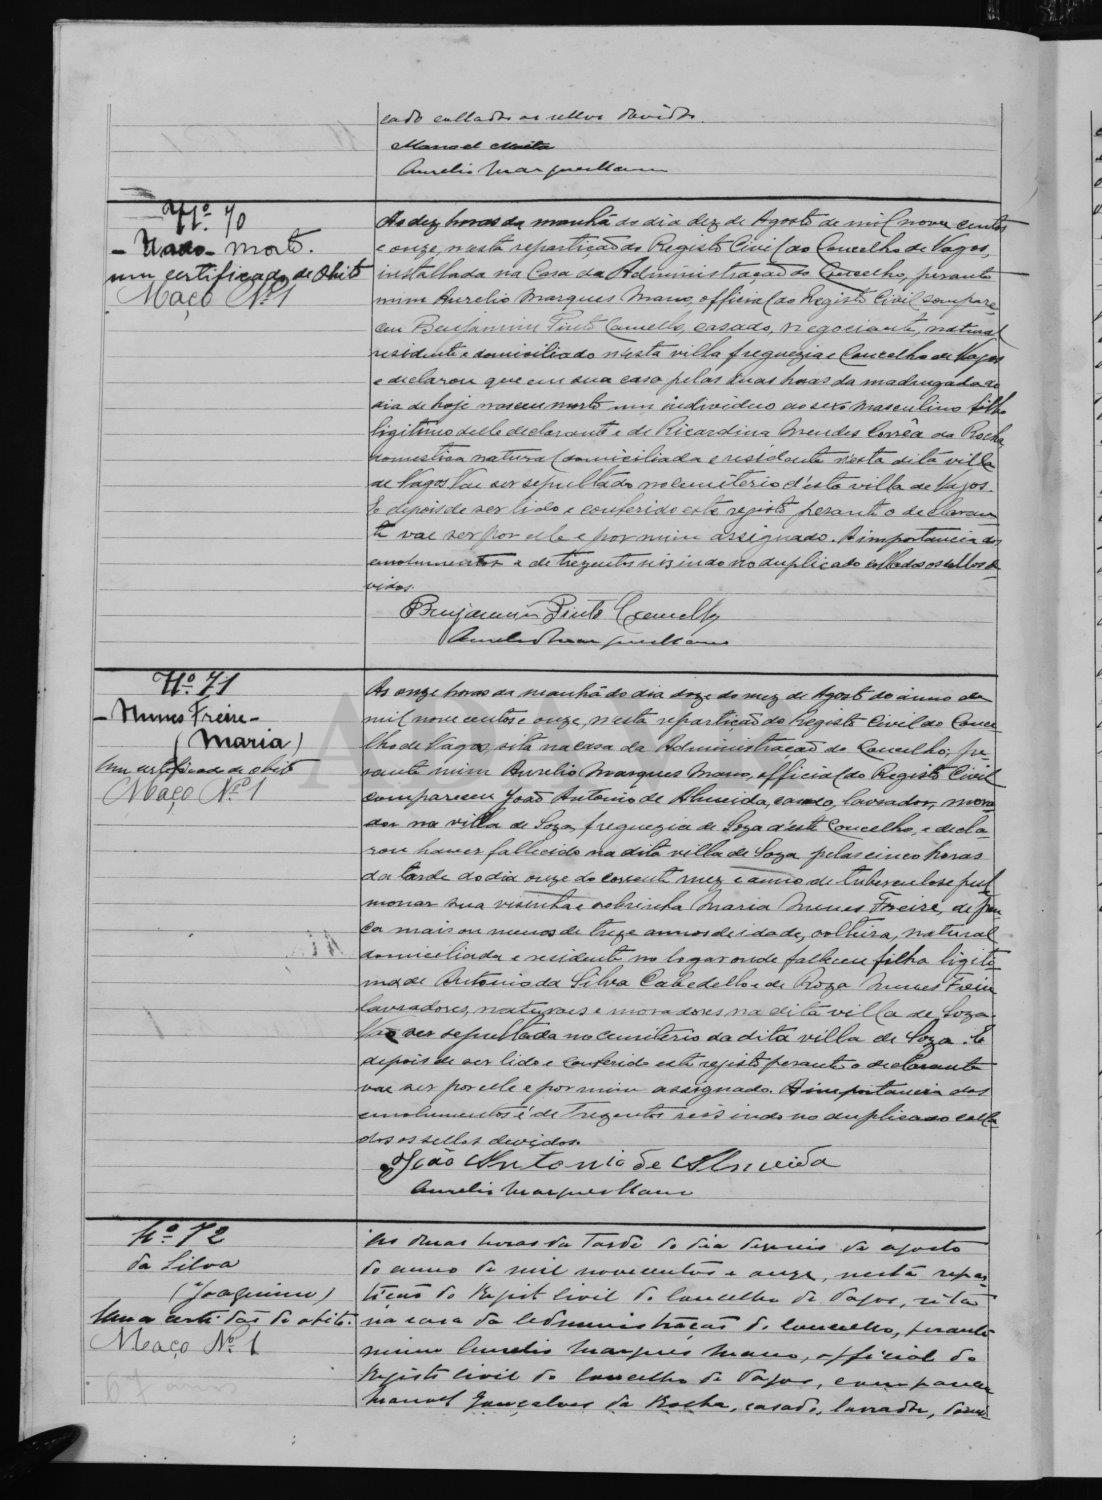 cado collados os sellos devidos.
Manoel Maria
Aurelio Marques Mano
Nº 70
- Nado - morto.
um certificado de obito
Maço Nº 1
As dez horas da manhã do dia dez de Agosto de mil nove centos
e onze, n'esta repartição do Registo Civil do Concelho de Vagos,
installada na Casa da Administração do Concelho, perante
mim Aurelio Marques Mano, official do Registo Civil compare-
ceu Benjamim Pinto Camello, casado, negociante, natural
residente e domiciliado n'esta villa freguezia e Concelho de Vagos
e declarou que em sua casa pelas duas horas da madrugada do
dia de hoje nasceu morto um individuo do sexo masculino filho
ligitimo delle declarante e de Ricardina Mendes Corrêa da Rocha,
domestica natural domiciliada e residente n'esta dita villa
de Vagos Vae ser sepultado no cemiterio d'esta villa de Vagos.
E depois de ser lido e conferido este registo perante o declaran
te vae ser por elle e por mim assignado. A importancia dos
emolumentos é de trezentos reis indo no duplicado collados os sellos de-
vidos.
Benjamim Pinto Camello
Aurelio Marques Mano
Nº 71
- Nunes Freire -
(Maria)
um certificado de obito
Maço Nº 1
As onze horas da manhã do dia doze do mez de Agosto do anno de
mil nove centos e onze, n'esta repartição do Registo Civil do Conce
lho de Vagos, sita na casa da Administração do Concelho, pe-
rante mim Aurelio Marques Mano, official do Registo Civil
compareceu João Antonio de Almeida, casado, lavrador, mora-
dor na villa de Soza, freguezia de Soza d'este Concelho, e decla-
rou haver fallecido na dita villa de Soza pelas cinco horas
da tarde do dia onze do corrente mez e anno de tuberculose pul
monar sua visinha e sobrinha Maria Nunes Freire, de pou
co mais ou menos de treze annos de idade, solteira, natural
domiciliada e residente no logar onde falleceu filha ligiti-
ma de Antonio da Silva Cabedello e de Roza Nunes Freire
lavradores, naturaes e moradores na dita villa de Soza.
Vae ser sepultada no cemiterio da dita villa de Soza. E
depois de ser lido e conferido este registo perante o declarante
vae ser por elle e por mim assignado. A importancia dos
emolumentos é de Trezentos reis indo no duplicado colla
dos os sellos devidos.
João Antonio de Almeida
Aurelio Marques Mano
Nº 72
da Silva
(Joaquim)
Uma certidão de obito.
Maço Nº 1
As duas horas da tarde do dia dezeseis de agosto
do anno de mil novecentos e onze, nesta repar-
tição do Registo civil do concelho de Vagos, sita
na casa da Administração do concelho, perante
mim Aurelio Marques Mano, official do
Registo civil do concelho de Vagos, compareceu
Manoel Gonçalves da Rocha, casado, lavrador, domi-